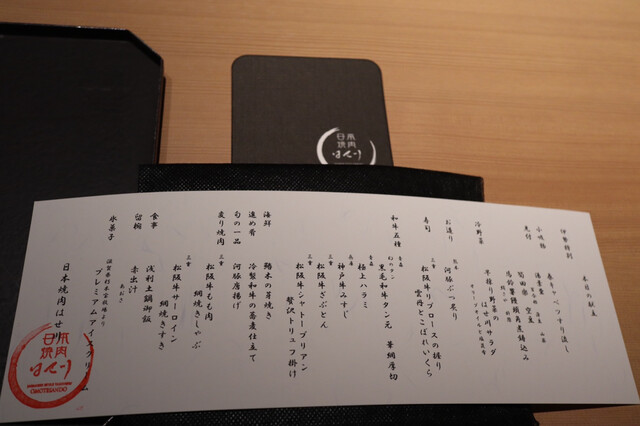 本日の献立
伊勢特別
春キャベツすり流し
小鳴椀
煮付
冷野菜
早採り野菜の
はせ川サラダ
お造り
河豚ぶっ刺し
寿司
三重
松阪牛リブロースの握り
雲丹とこぼれいくら
和牛五種
黒毛和牛タン元 華網厚切
極上ハラミ
兵庫
神戸牛みすじ
三重
松阪牛ざぶとん
三重
松阪牛シャトーブリアン
贅沢トリュフ掛け
海鮮
進め肴
冷製和牛の蕎麦仕立て
旬の一品
河豚唐揚げ
炙り焼肉
三重
松阪牛もも肉
網焼きしゃぶ
三重
松阪牛サーロイン
網焼きすき
食事
浅利土鍋御飯
留椀
赤出汁
氷菓子
プレミアムアイスクリーム
日本焼肉はせ川
日本焼肉はせ川
OMOTESANDO
日本焼肉はせ川